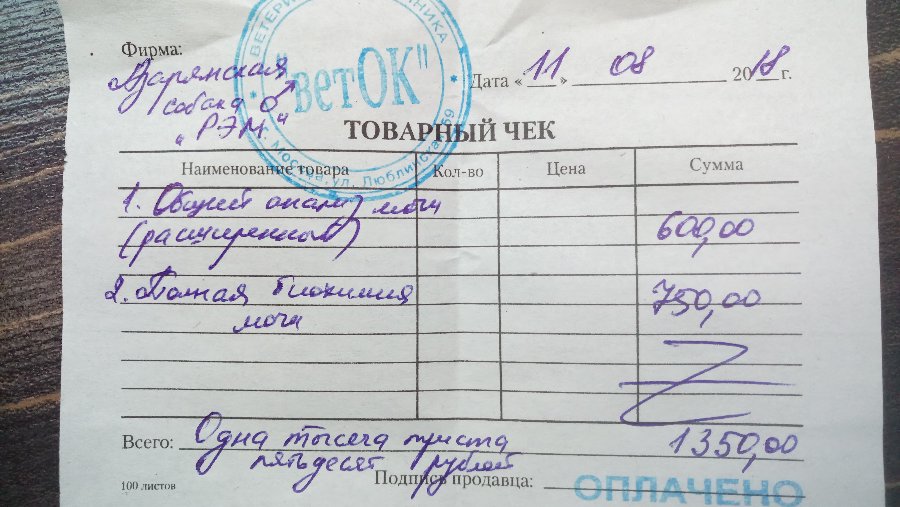 Фирма:
собака ♂
"РЭМ"
ВЕТЕРИНАРНАЯ КЛИНИКА
"ветОК"
г. Москва, ул. Люблинская 159
Дата «11» 08 2018 г.
ТОВАРНЫЙ ЧЕК
Наименование товара Кол-во Цена Сумма
1. Общий анализ мочи
(расширенный) 600,00
2. Полная биохимия 750,00
мочи
Всего: Одна тысяча триста 1350,00
пятьдесят рублей
100 листов Подпись продавца:
ОПЛАЧЕНО